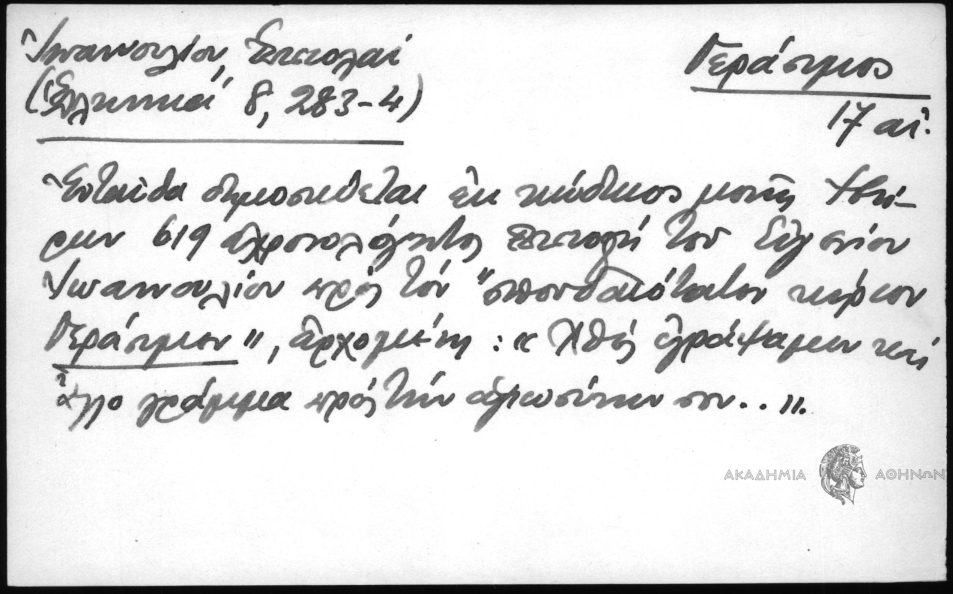 Ἰωαννουλίου, Ἐπιστολαί
(Ἑλληνικά 8, 283-4)
Γεράσιμος
17 αἰ.
Ἐνταῦθα δημοσιεύεται ἐκ κώδικος μονῆς Ἰβή-
ρων 619 ἀχρονολόγητος ἐπιστολή τοῦ Εὐγενίου
Ἰωαννουλίου πρός τόν "σπουδαιότατον κύριον
Γεράσιμον", ἀρχομένη: "Χθές ἐγράψαμεν καί
ἄλλο γράμμα πρός τήν ἁγιωσύνην σου..".
ΑΚΑΔΗΜΙΑ ΑΘΗΝΩΝ